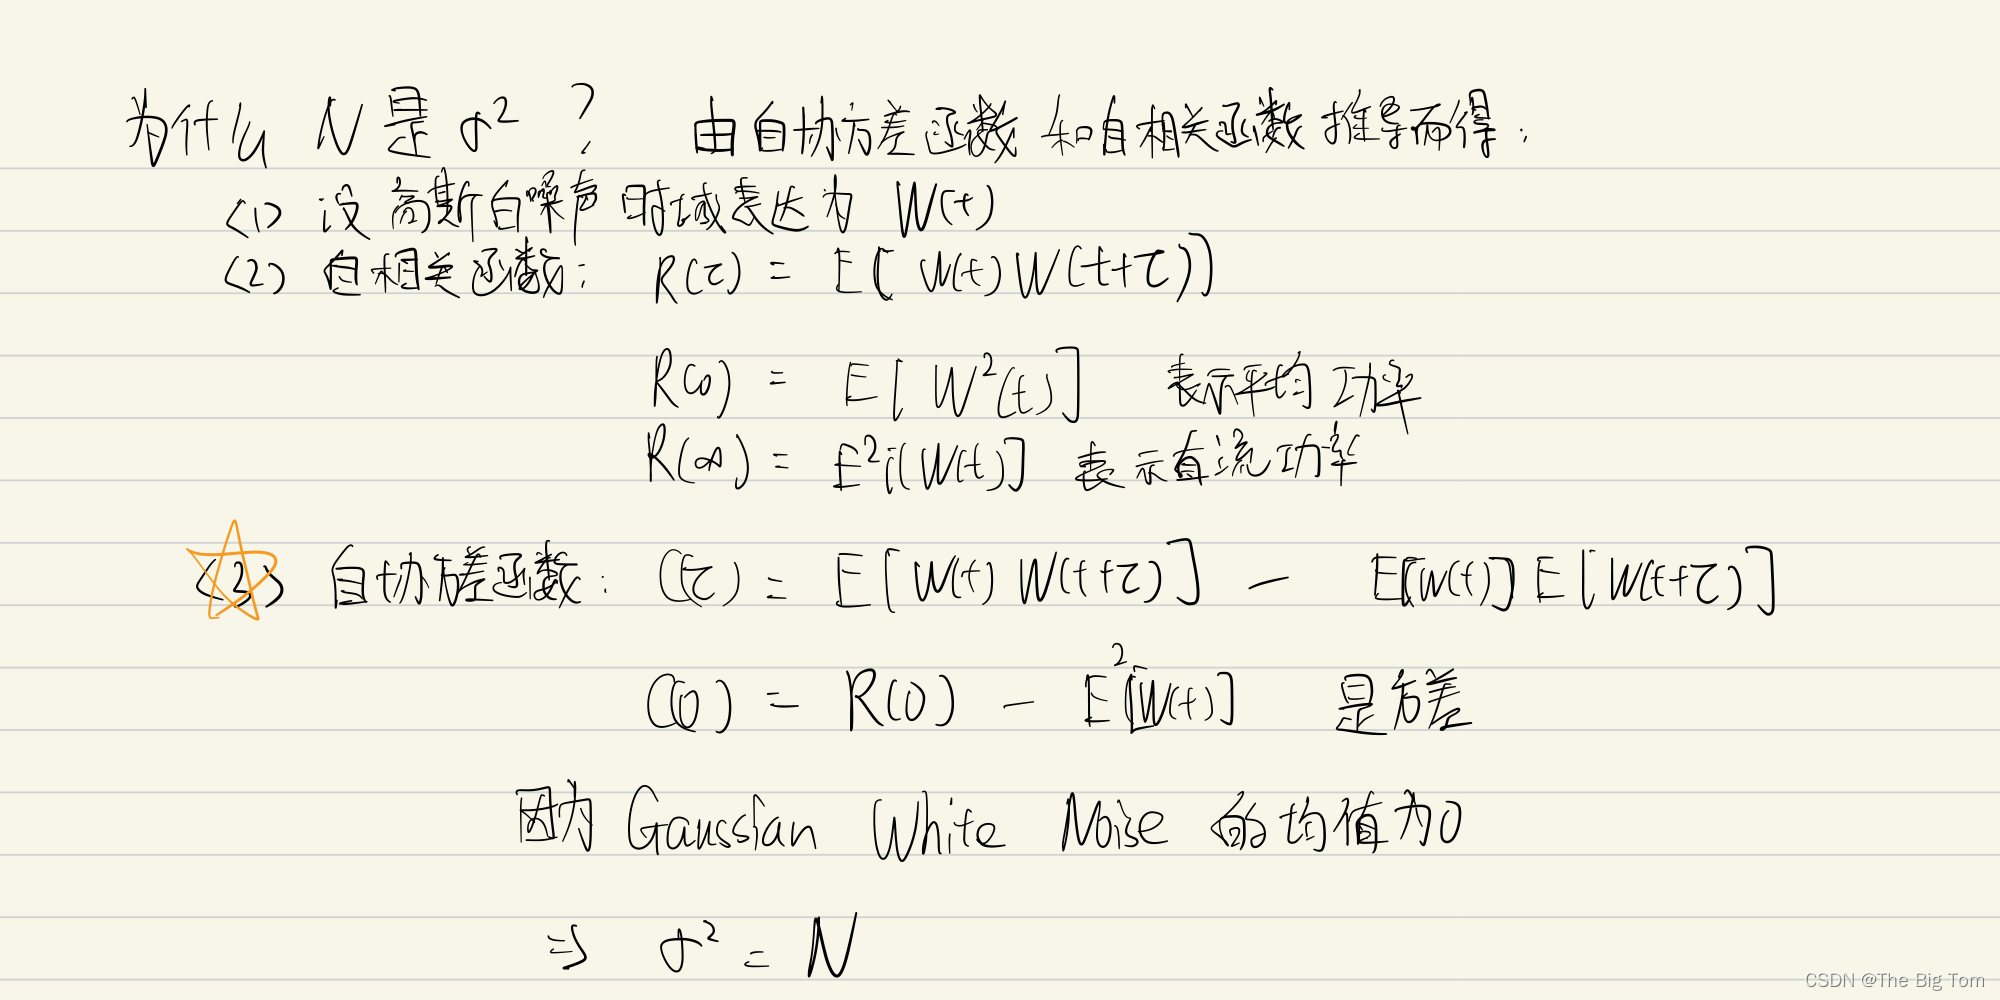 为什么 N 是 σ² ? 由自协方差函数和自相关函数推导而得:
(1) 设高斯白噪声时域表达为 W(t)
(2) 自相关函数: R(τ) = E[W(t)W(t+τ)]
R(0) = E[W²(t)] 表示平均功率
R(∞) = E²[W(t)] 表示直流功率
(3) 自协方差函数: C(τ) = E[W(t)W(t+τ)] - E[W(t)]E[W(t+τ)]
C(0) = R(0) - E²[W(t)] 是方差
因为 Gaussian White Noise 的均值为0
⇒ σ² = N
CSDN @The Big Tom